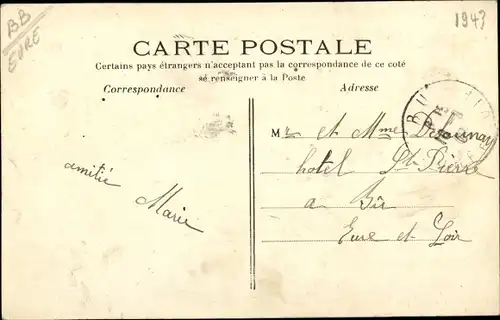 BB
EURE
1943
CARTE POSTALE
Certains pays étrangers n'acceptant pas la correspondance de ce coté
se renseigner à la Poste
Correspondance
Adresse
amitié
Marie
Mr et Mme Delaunay
hotel St-Pierre
a Bû
Eure et Loir